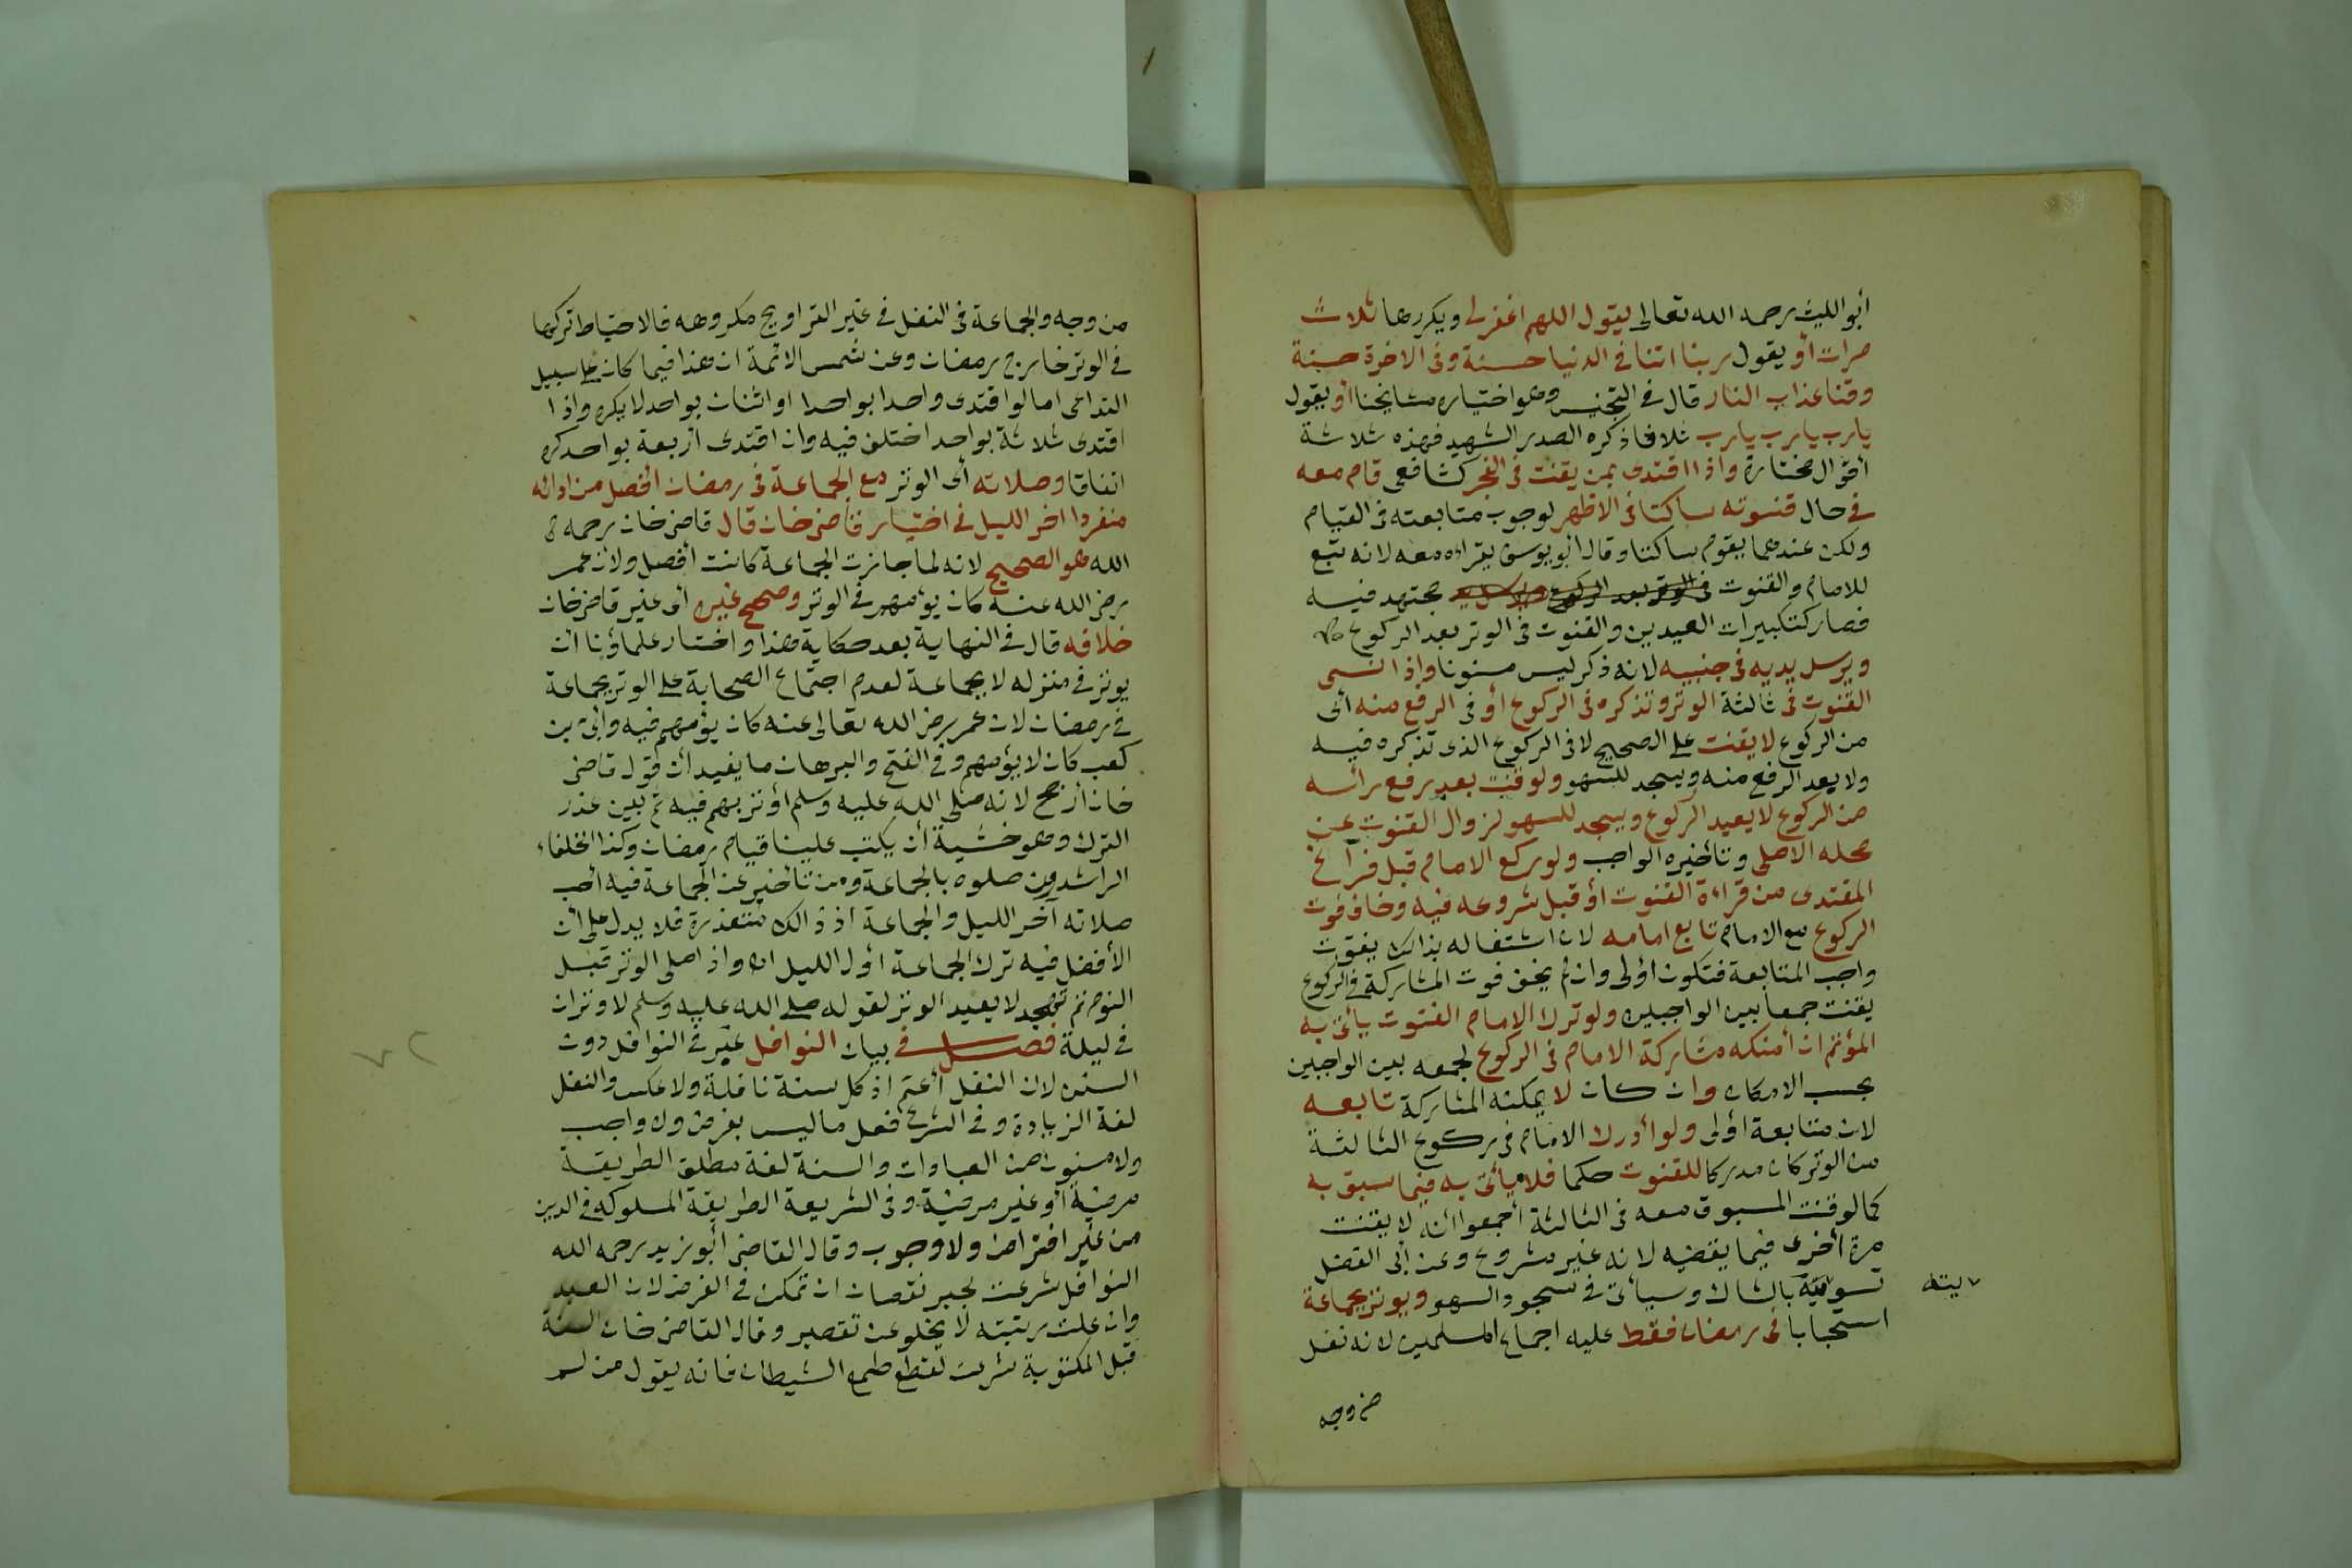 أبو الليث رحمه الله تعالى يقول اللهم اغفرلى ويكررها ثلاث
مرات أو يقول ربنا اتنا فى الدنيا حسنة وفى الاخرة حسنة
وقنا عذاب النار قال فى التجنيس وهو اختيار مشايخنا أو يقول
يارب يارب يارب ثلاثا ذكره الصدر الشهيد فهذه ثلاثة
أقوال مختارة واذا اقتدى بمن يقنت فى الفجر كشافعى قام معه
فى حال قنوته ساكتا فى الاظهر لوجوب متابعته فى القيام
ولكن عندهما يقوم ساكتا وقال أبو يوسف يقراه معه لانه تبع
للامام والقنوت فى الوتر بعد الركوع مجتهد فيه
فصار كتكبيرات العيدين والقنوت فى الوتر بعد الركوع
ويرسل يديه فى جنبيه لانه ذكر ليس مسنونا واذا نسى
القنوت فى ثالثة الوتر وتذكره فى الركوع أو فى الرفع منه أى
من الركوع لا يقنت على الصحيح لا فى الركوع الذى تذكره فيه
ولا بعد الرفع منه ويسجد للسهو ولو قنت بعد رفع رأسه
من الركوع لا يعيد الركوع ويسجد للسهو لزوال القنوت عن
محله الاصلى وتأخيره الواجب ولو ركع الامام قبل فراغ
المقتدى من قراءة القنوت أو قبل شروعه فيه وخاف فوت
الركوع مع الامام تابع امامه لان اشتغاله بذالك يفوت
واجب المتابعة فتكون أولى وان لم يخف فوت المشاركة فى الركوع
يقنت جمعا بين الواجبين ولو ترك الامام القنوت يأتى به
المؤتم ان أمنكه مشاركة الامام فى الركوع لجمعه بين الواجبين
بحسب الامكان وان كان لا يمكنه المشاركة تابعه
لان متابعة أولى ولو أدرك الامام فى ركوع الثالثة
من الوتر كان مدركا للقنوت حكما فلا يأتى به فيما سبق به
كما لو قنت المسبوق معه فى الثالثة أجمعوا أنه لا يقنت
مرة أخرى فيما يقضيه لانه غير مشروع وعن أبى الفضل
تسويته بالشاك وسيأتى فى سجود السهو ويوتر بجماعة
يته
استحبابا فى رمضان فقط عليه اجماع المسلمين لانه نفل
من وجه
من وجه والجماعة فى النفل فى غير التراويح مكروهه فالاحتياط تركها
فى الوتر خارج رمضان وعن شمس الائمة ان هذا فيما كان على سبيل
التداعى اما لو اقتدى واحدا بواحد او اثنان بواحد لا يكره واذا
اقتدى ثلاثة بواحد اختلف فيه وان اقتدى أربعة بواحد كره
اتفاقا وصلاته أى الوتر مع الجماعة فى رمضان أفضل من ادائه
منفردا اخر الليل فى اختيار قاضى خان قال قاضى خان رحمه
الله هو الصحيح لانه لما جازت الجماعة كانت أفضل ولان عمر
رضى الله عنه كان يؤمهم فى الوتر وصحح غيره أى غير قاضى خان
خلافه قال فى النهاية بعد حكاية هذا واختار علماؤنا ان
يوتر فى منزله لا بجماعة لعدم اجتماع الصحابة على الوتر بجماعة
فى رمضان لان عمر رضى الله تعالى عنه كان يؤمهم فيه وأبى بن
كعب كان لا يؤمهم وفى الفتح والبرهان ما يفيد ان قول قاضى
خان أرجح لانه صلى الله عليه وسلم أوتر بهم فيه ثم بين عذر
الترك وهو خشية أن يكتب علينا قيام رمضان وكذا الخلفاء
الراشدون صلوه بالجماعة ومن تأخير عن الجماعة فيه أحب
صلاته آخر الليل والجماعة اذ ذالك متعذرة فلا يدل على أن
الأفضل فيه ترك الجماعة أول الليل اه واذ اصلى الوتر قبل
النوم ثم تهجد لا يعيد الوتر لقوله صلى الله عليه وسلم لا وتران
فى ليلة فصل فى بيان النوافل عبر فى النوافل دون
السنن لان النفل أعم اذ كل سنة نافلة ولا عكس والنفل
لغة الزيادة وفى الشرع فعل ما ليس بفرض ولا واجب
ولا مسنون من العبادات والسنة لغة مطلق الطريقة
مرضية أو غير مرضية وفى الشريعة الطريقة المسلوكه فى الدين
من غير افتراض ولا وجوب وقال القاضى أبو زيد رحمه الله
النوافل شرعت لجبر نقصان ان تمكن فى الفرض لان العبد
وان علت رتبته لا يخلو عن تقصير وقال القاضى خان السنة
قبل المكتوبة شرعت لقطع طمع الشيطان فانه يقول من لم